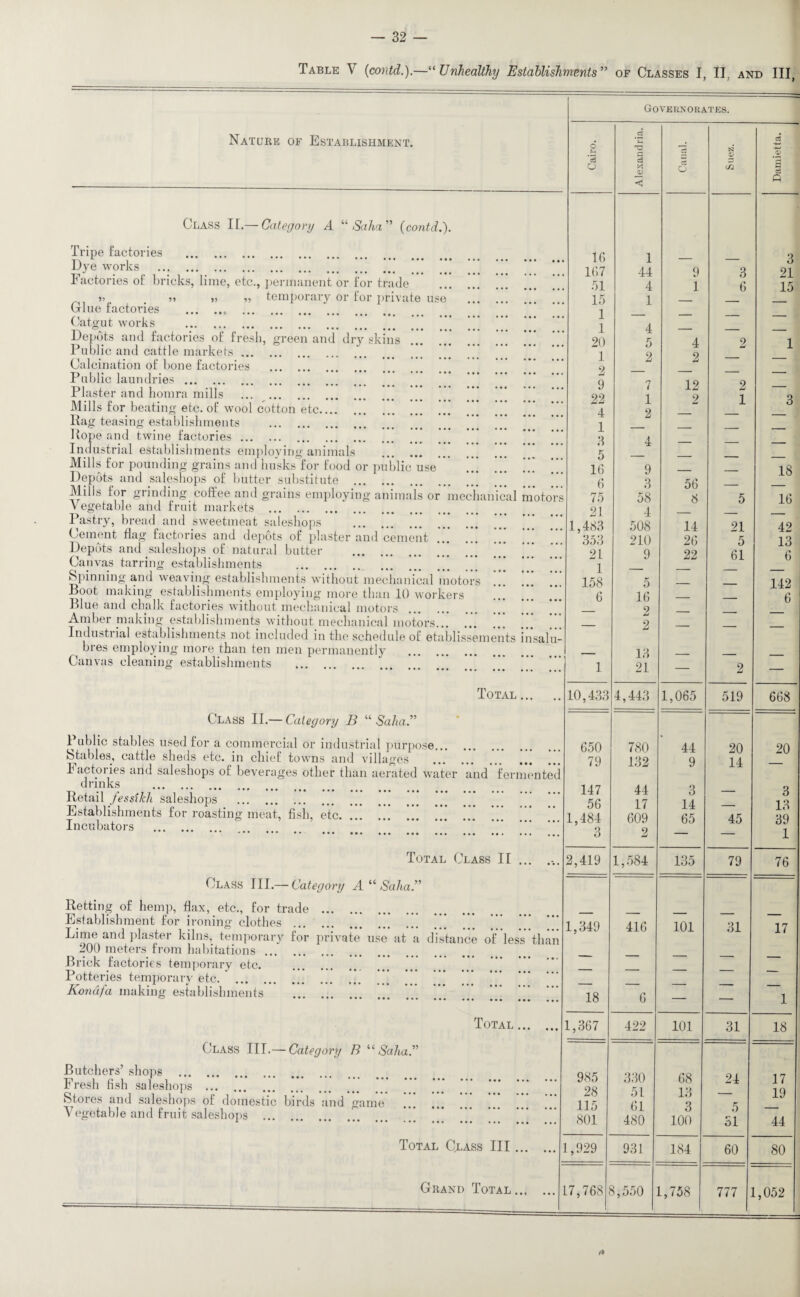 — 32 —
Table V (contd.).—“Unhealthy Establishments” of Classes I, II, and III,
Governorates.
Nature of Establishment. Cairo. Alexandria. Canal. Suez. Damietta.
Class II.—Category A “Saha” (contd.).
Tripe factories ... 16 1 — — 3
Dye works ... 167 44 9 3 21
Factories of bricks, lime, etc., permanent or for trade ... 51 4 1 6 15
„ „ „ „ temporary or for private use ... 15 1 — — —
Glue factories ... 1 — — — —
Catgut works ... 1 4 — — —
Depôts and factories of fresh, green and dry skins ... 20 5 4 2 1
Public and cattle markets ... 1 2 2 — —
Calcination of bone factories ... 2 — — — —
Public laundries ... 9 7 12 2 —
Plaster and homra mills ... 22 1 2 1 3
Mills for beating etc. of wool cotton etc.... 4 2 — — —
Rag teasing establishments ... 1 — — — —
Rope and twine factories ... 3 4 — — —
Industrial establishments employing animals ... 5 — — — —
Mills for pounding grains and husks for food or public use ... 16 9 — — 18
Depôts and saleshops of butter substitute ... 6 3 56 — —
Mills for grinding coffee and grains employing animals or mechanical motors 75 58 8 5 16
Vegetable and fruit markets ... 21 4 — — —
Pastry, bread and sweetmeat saleshops ... 1,483 508 14 21 42
Cement flag factories and depôts of plaster and cement ... 353 210 26 5 13
Depôts and saleshops of natural butter ... 21 9 22 61 6
Canvas tarring establishments ... 1 — — — —
Spinning and weaving establishments without mechanical motors ... 158 5 — — 142
Boot making establishments employing more than 10 workers ... 6 16 — — 6
Blue and chalk factories without mechanical motors ... — 2 — — —
Amber making establishments without mechanical motors... — 2 — — —
Industrial establishments not included in the schedule of etablissements insalu-
bres employing more than ten men permanently ... — 13 — — —
Canvas cleaning establishments ... 1 21 — 2 —
Total ... 10,433 4,443 1,065 519 668
Class II.—Category B “Saha.”
Public stables used for a commercial or industrial purpose... 650 780 44 20 20
Stables, cattle sheds etc. in chief towns and villages ... 79 132 9 14 —
Factories and saleshops of beverages other than aerated water and fermented
drinks ... 147 44 3 — 3
Retail fessîkh saleshops ... 56 17 14 — 13
Establishments for roasting meat, fish, etc. ... 1,484 609 65 45 39
Incubators ... 3 2 — — 1
Total Class II ... 2,419 1,584 135 79 76
Class III.—Category A “Saha.”
Retting of hemp, flax, etc., for trade ... — — — — —
Establishment for ironing clothes ... 1,349 416 101 31 17
Lime and plaster kilns, temporary for private use at a distance of less than
200 meters from habitations ... — — — — —
Brick factories temporary etc. ... — — — — —
Potteries temporary etc. ... — — — — —
Konâfa making establishments ... 18 6 — — 1
Total ... 1,367 422 101 31 18
Class III.—Category B “Saha.”
Butchers’ shops ... 985 330 68 24 17
Fresh fish saleshops ... 28 51 13 — 19
Stores and saleshops of domestic birds and game ... 115 61 3 5 —
Vegetable and fruit saleshops ... 801 480 100 31 44
Total Class III ... 1,929 931 184 60 80
Grand Total ... 17,768 8,550 1,758 777 1,052